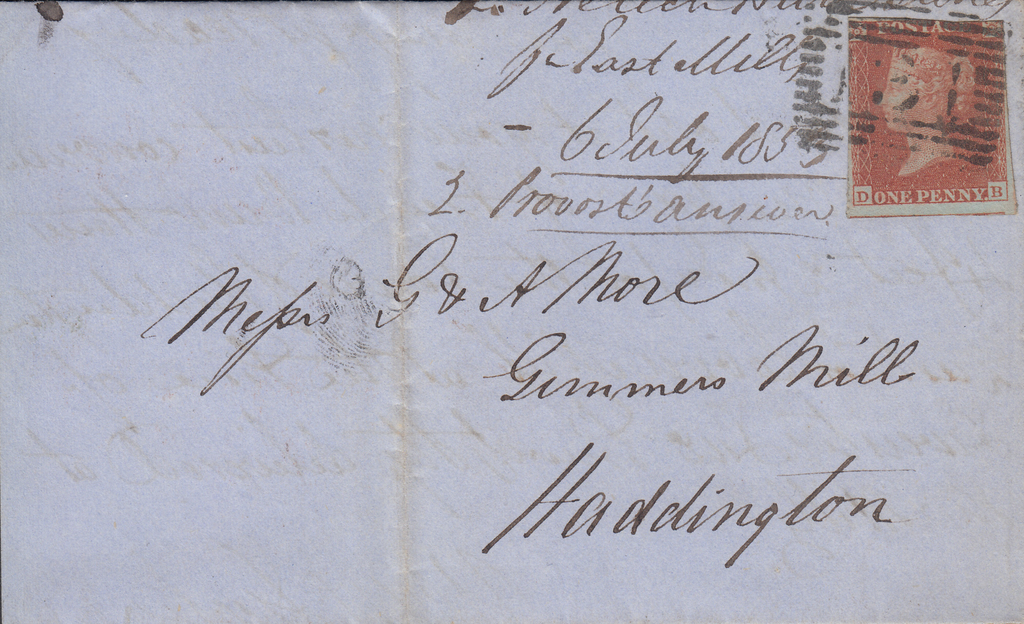 fr East Mill
POSTAGE
– 6 July 1853
2. Provost's answer
D ONE PENNY. B
Messrs G & A More
Gimmers Mill
Haddington